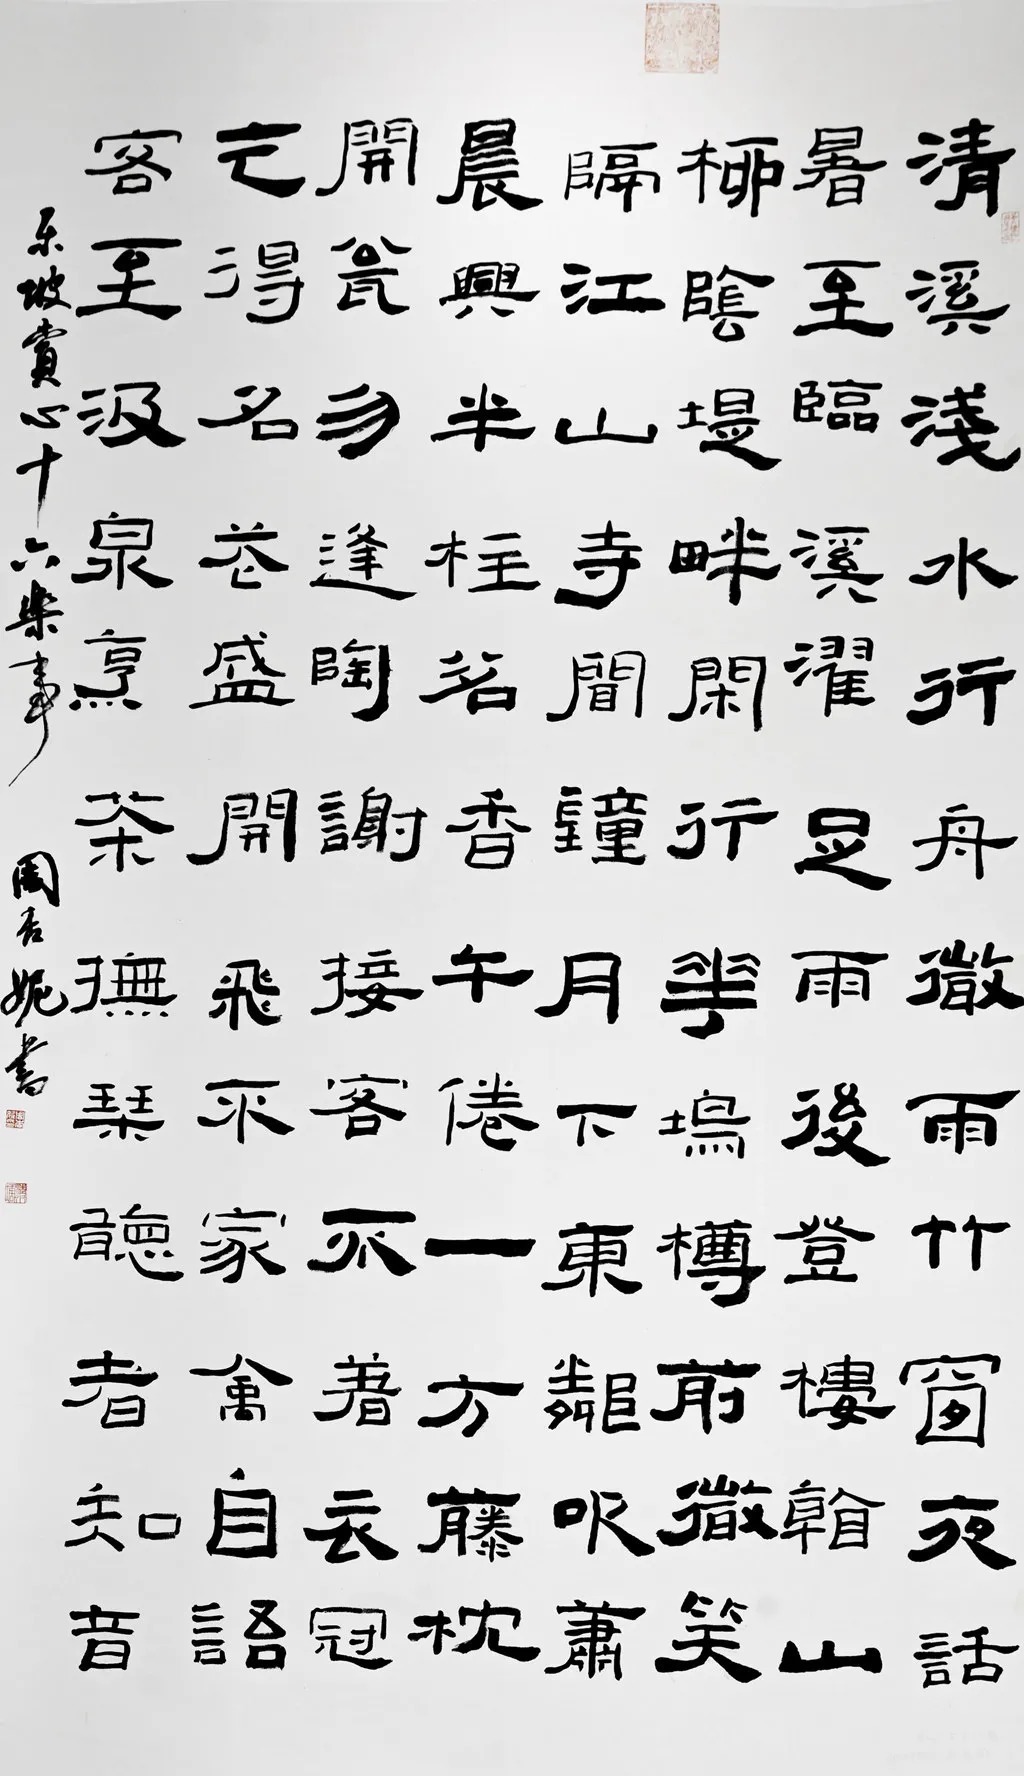 清溪淺水行舟微雨竹窗夜話
暑至臨溪濯足雨後登樓看山
柳陰堤畔閑行華塢樽前微笑
隔江山寺聞鐘月下東鄰吹蕭
晨興半柱茗香午倦一方藤枕
開瓮勿逢陶謝接客不著衣冠
乞得名花盛開飛來家禽自語
客至汲泉烹茶撫琴聽者知音
东坡賞心十六樂事 周杏妮書